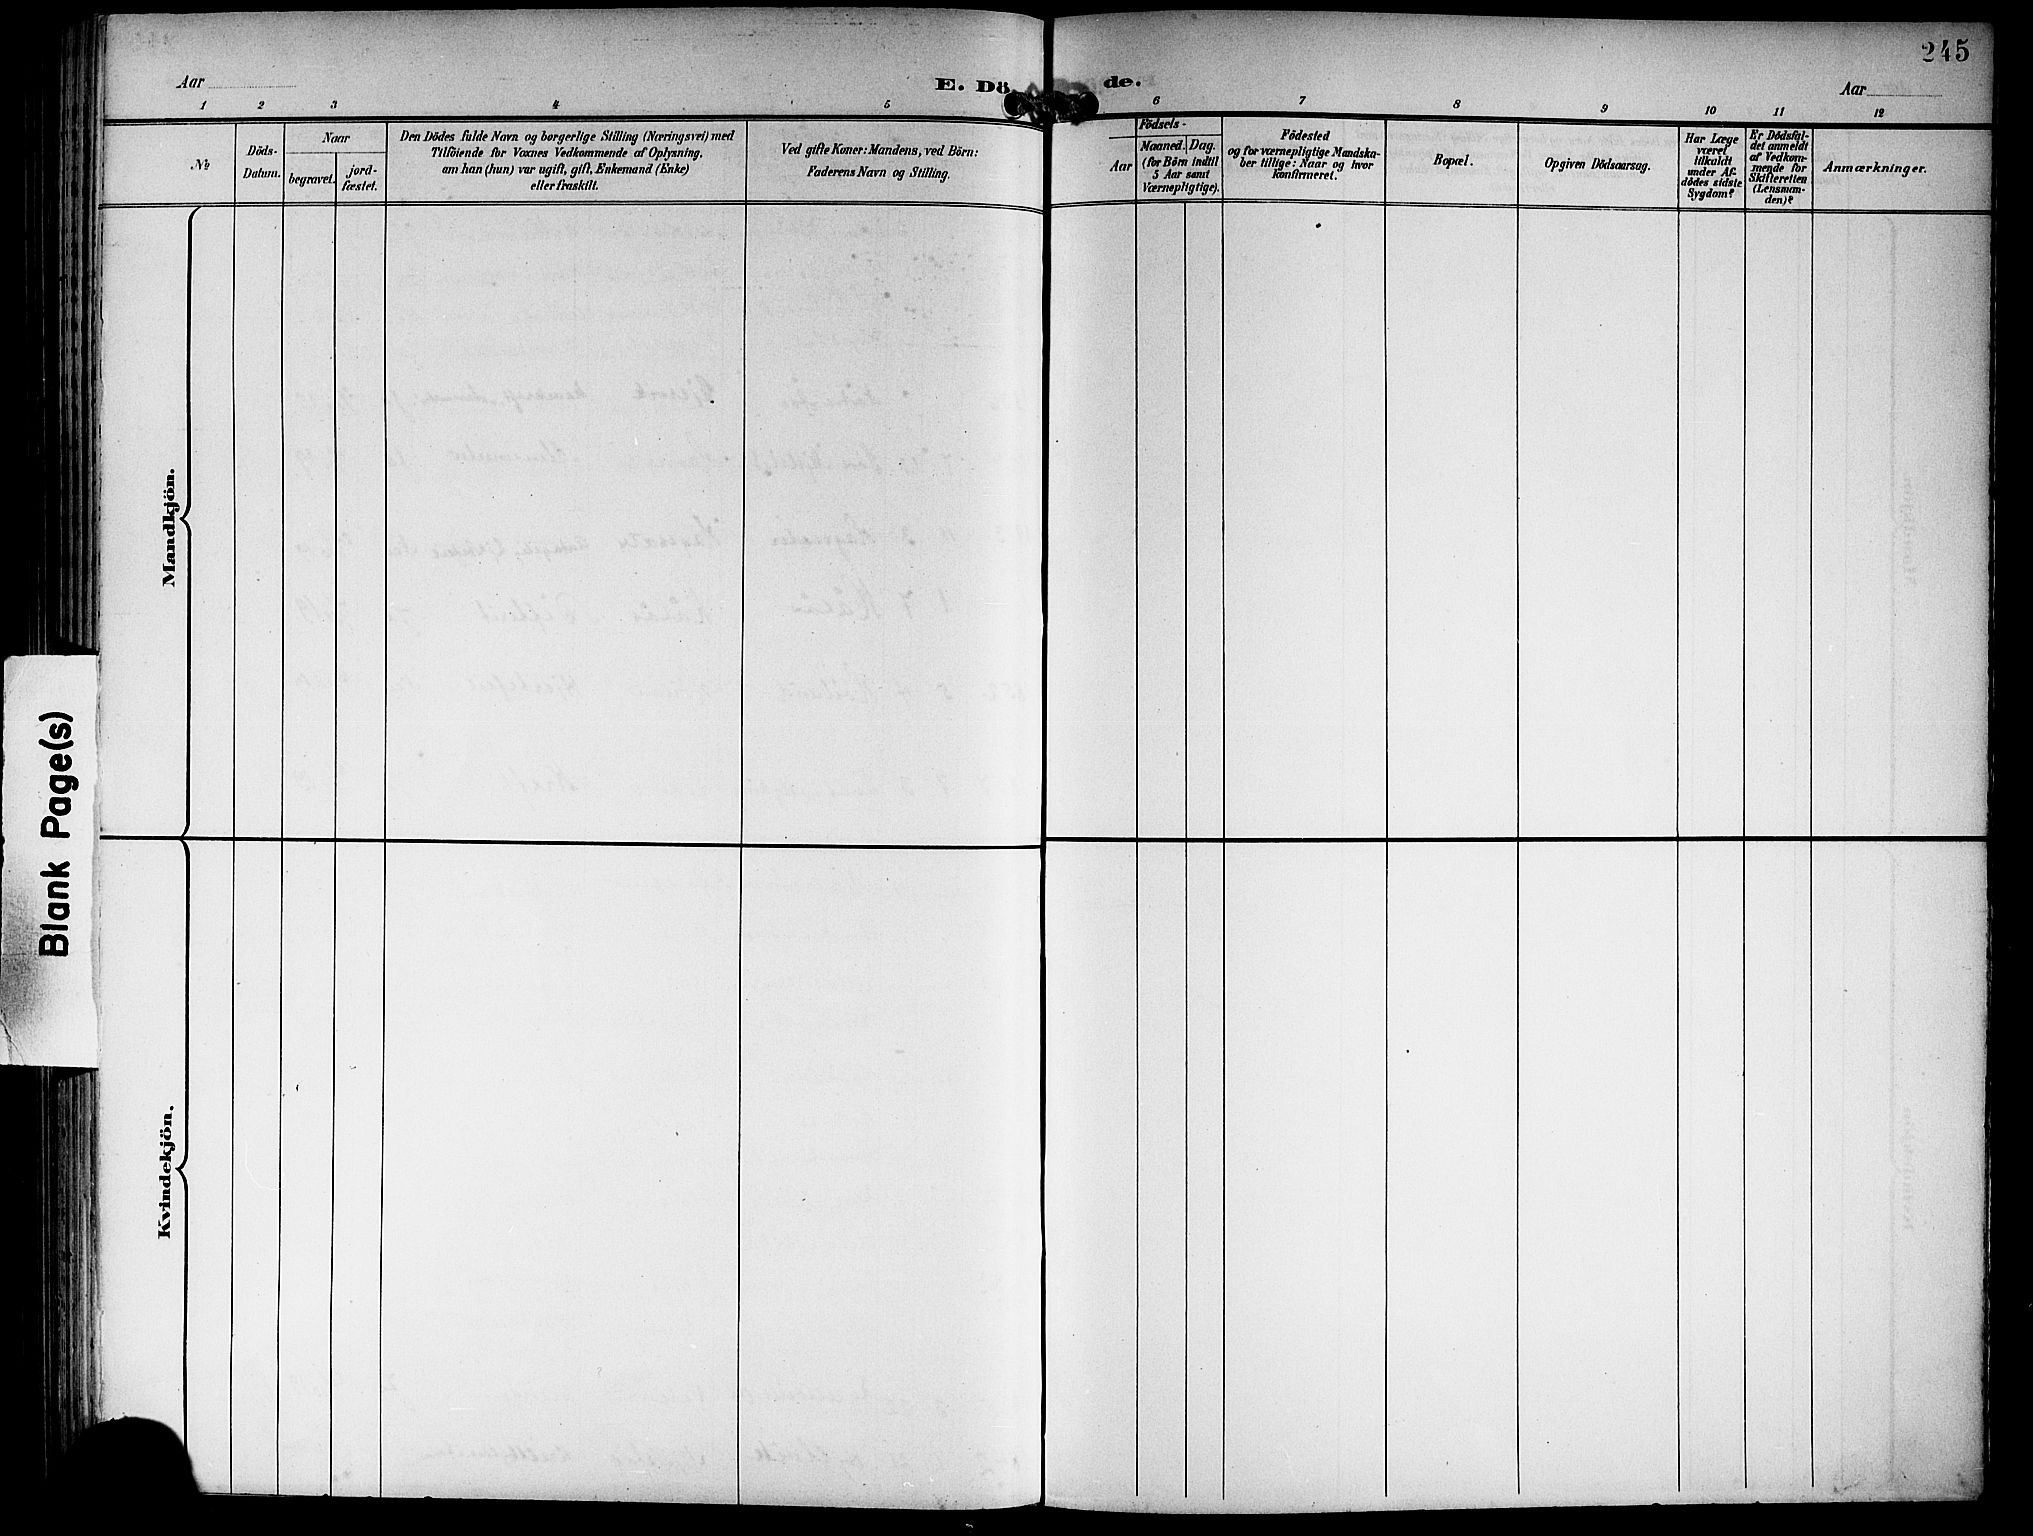 245
Aar
E. Dö
de.
Aar
1 2 3 4 5 6 7 8 9 10 11 12
№
Döds-
Datum.
Naar
begravet.
jord-
fæstet.
Den Dödes fulde Navn og borgerlige Stilling (Næringsvei) med
Tilföiende for Voxnes Vedkommende af Oplysning,
om han (hun) var ugift, gift, Enkemand (Enke)
eller fraskilt.
Ved gifte Koner: Mandens, ved Börn:
Faderens Navn og Stilling.
Födsels-
Aar
Maaned. Dag.
(for Börn indtil
5 Aar samt
Værnepligtige).
Födested
og for værnepligtige Mandska-
ber tillige: Naar og hvor
konfirmeret.
Bopæl.
Opgiven Dödsaarsag.
Har Læge
været
tilkaldt
under Af-
dödes sidste
Sygdom?
Er Dödsfal-
det anmeldt
af Vedkom-
mende for
Skifteretten
(Lensman-
den)?
Anmærkninger.
Mandkjön.
Blank Page(s)
Kvindekjön.